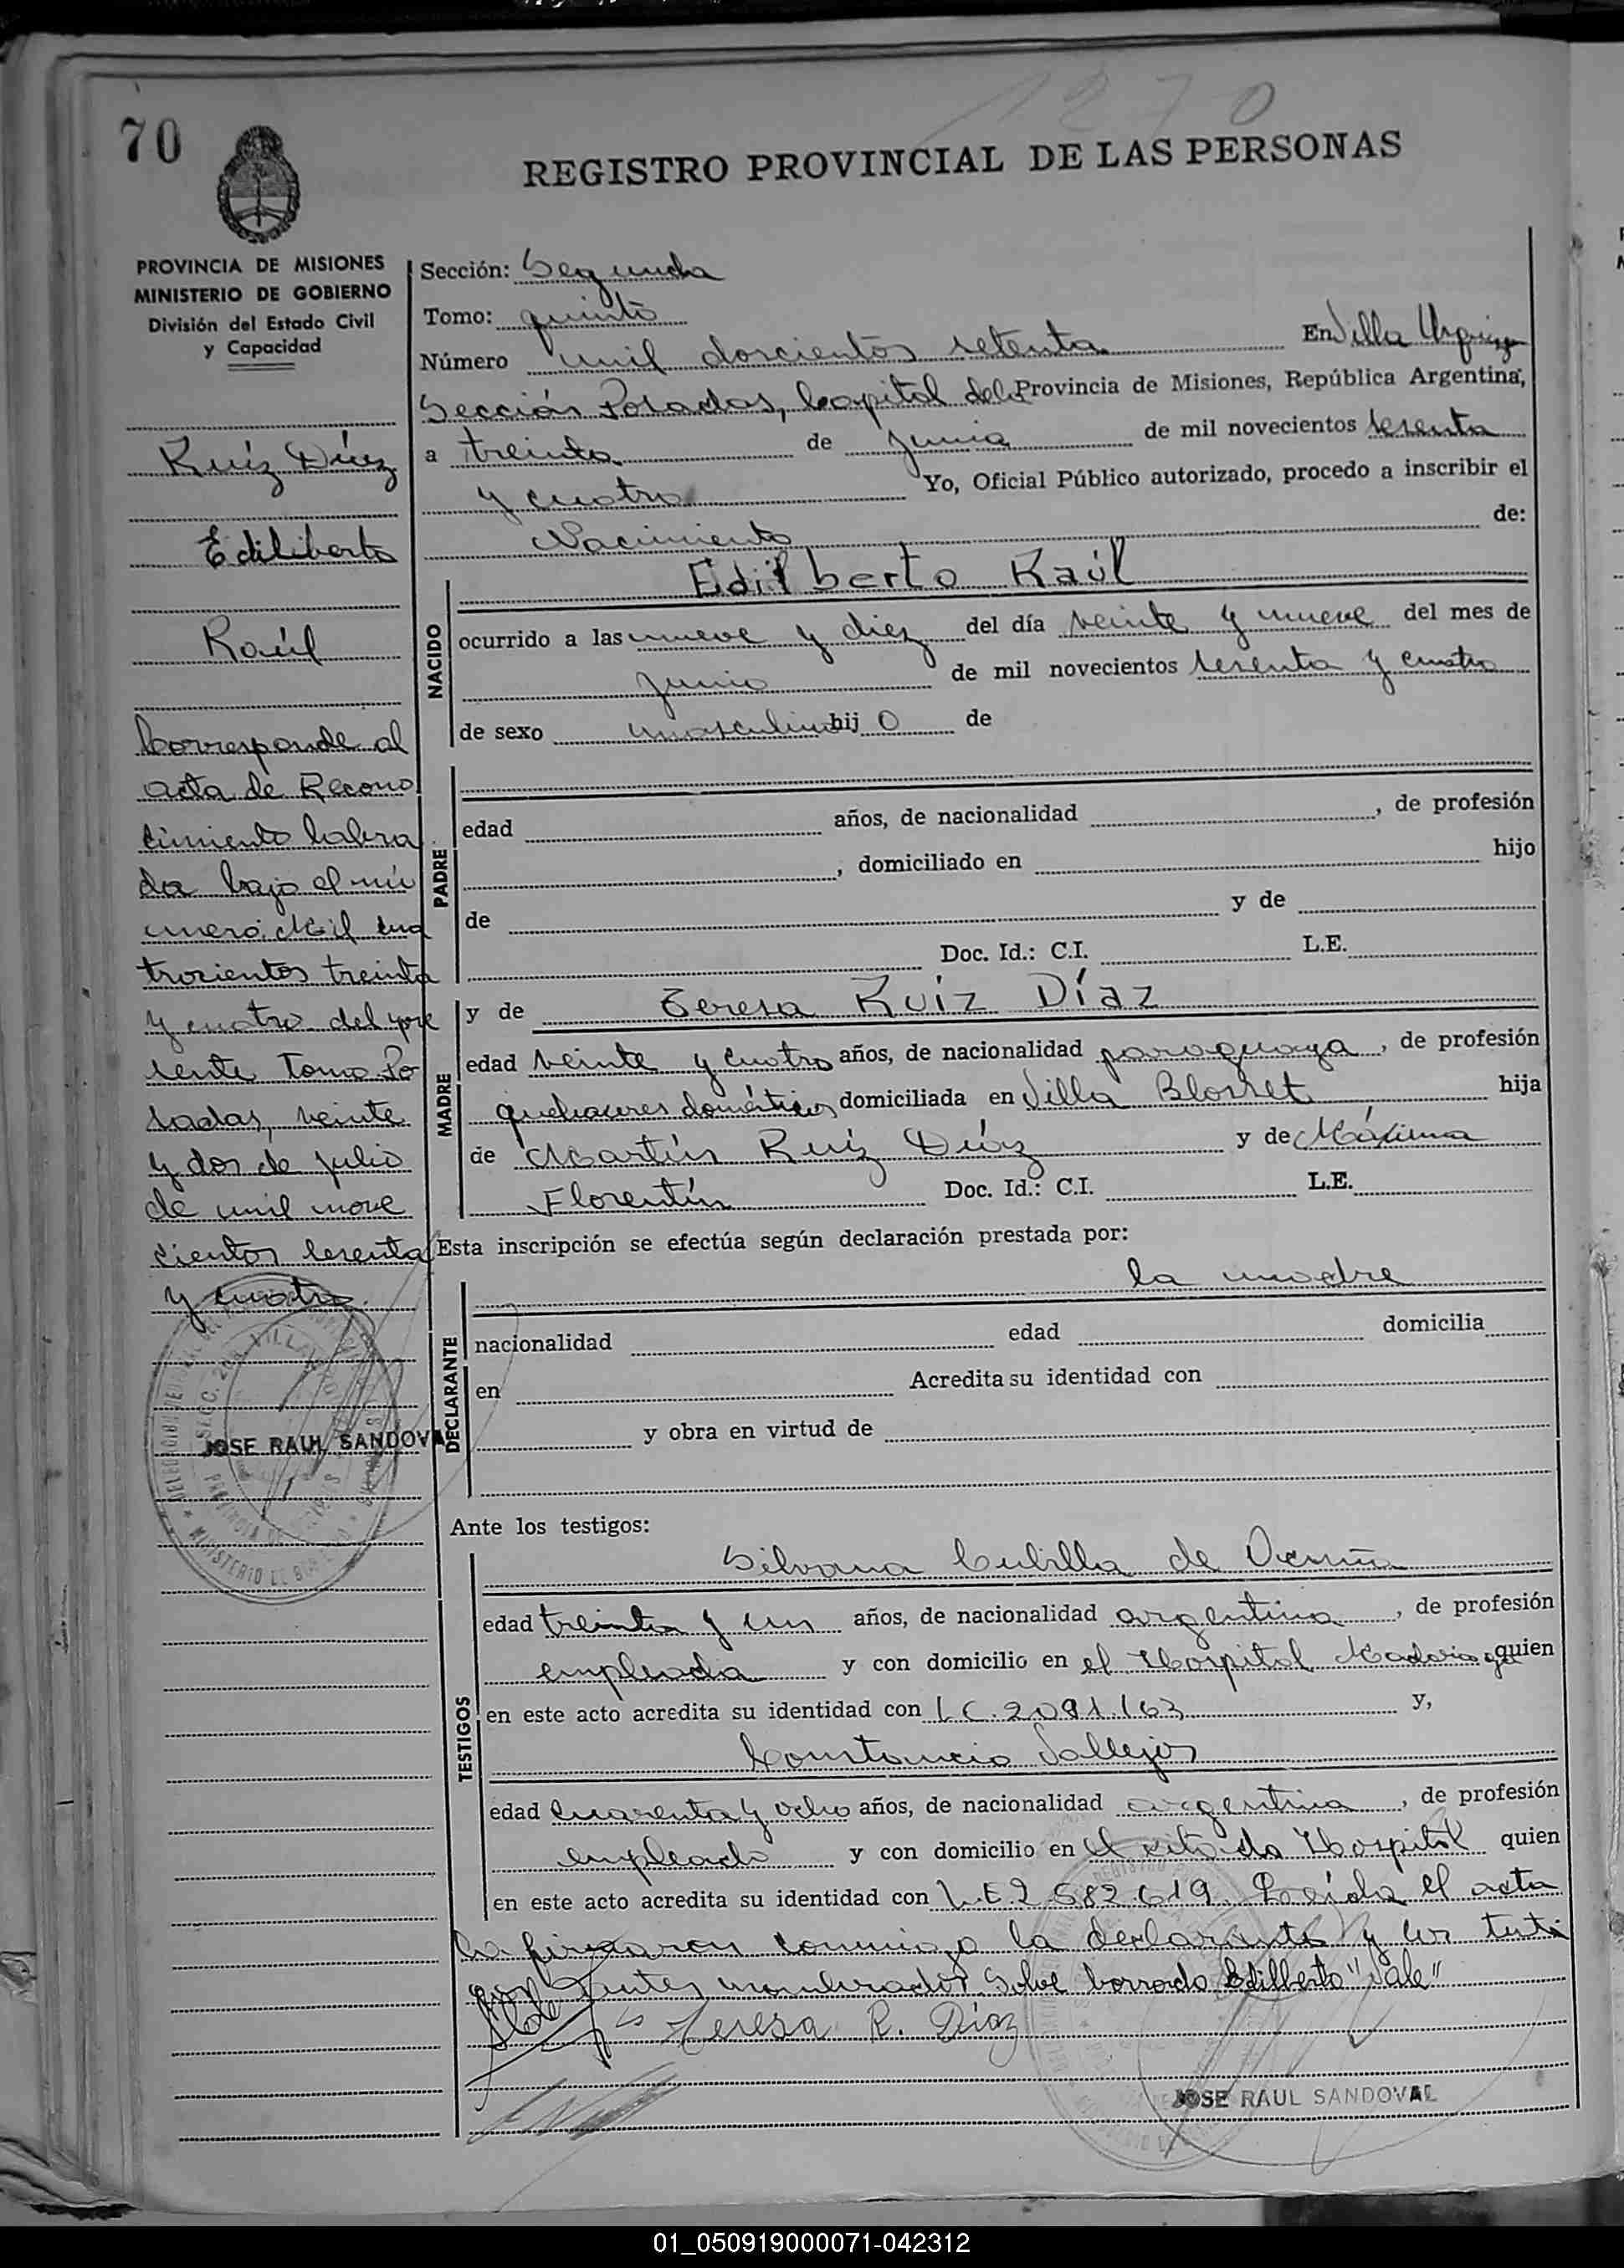 1270
70
REGISTRO PROVINCIAL DE LAS PERSONAS
PROVINCIA DE MISIONES
MINISTERIO DE GOBIERNO
División del Estado Civil
y Capacidad
Ruíz Díaz
Ediliberto
Raúl
Corresponde al
acta de Recono
cimiento labra
da bajo el nú
mero: Mil cua
trocientos treinta
y cuatro del pre
sente Tomo. Po
sadas, veinte
y dos de julio
de mil nove
cientos sesenta
y cuatro.
JOSE RAUL SANDOVAL
Sección: Segunda
Tomo: quinto
Número mil doscientos setenta En Villa Urquiza
Sección Posadas, Capital de la Provincia de Misiones, República Argentina,
a treinta de junio de mil novecientos sesenta
y cuatro Yo, Oficial Público autorizado, procedo a inscribir el
Nacimiento de:
NACIDO
Edilberto Raúl
ocurrido a las nueve y diez del día veinte y nueve del mes de
junio de mil novecientos sesenta y cuatro
de sexo masculino hijo de
PADRE
edad años, de nacionalidad , de profesión
, domiciliado en hijo
de y de
Doc. Id.: C.I. L.E.
MADRE
y de Teresa Ruiz Díaz
edad veinte y cuatro años, de nacionalidad paraguaya, de profesión
quehaceres domésticos domiciliada en Villa Blosset hija
de Martín Ruiz Díaz y de Máxima
Florentín Doc. Id.: C.I. L.E.
Esta inscripción se efectúa según declaración prestada por:
DECLARANTE
la madre
nacionalidad edad domicilia
en Acredita su identidad con
y obra en virtud de
Ante los testigos:
TESTIGOS
Silvana Cubilla de
edad treinta y un años, de nacionalidad argentina, de profesión
empleada y con domicilio en el Hospital Madariaga quien
en este acto acredita su identidad con LC. 2091.163 y,
Constancio Vallejos
edad cuarenta y ocho años, de nacionalidad argentina, de profesión
empleado y con domicilio en el citado Hospital quien
en este acto acredita su identidad con L.E 2.582.619. Leída el acta
la firmaron conmigo la declarante y los testi
gos antes nombrados. Sobre borrado Edilberto "Vale"
Teresa R. Diaz
JOSE RAUL SANDOVAL
01_050919000071-042312